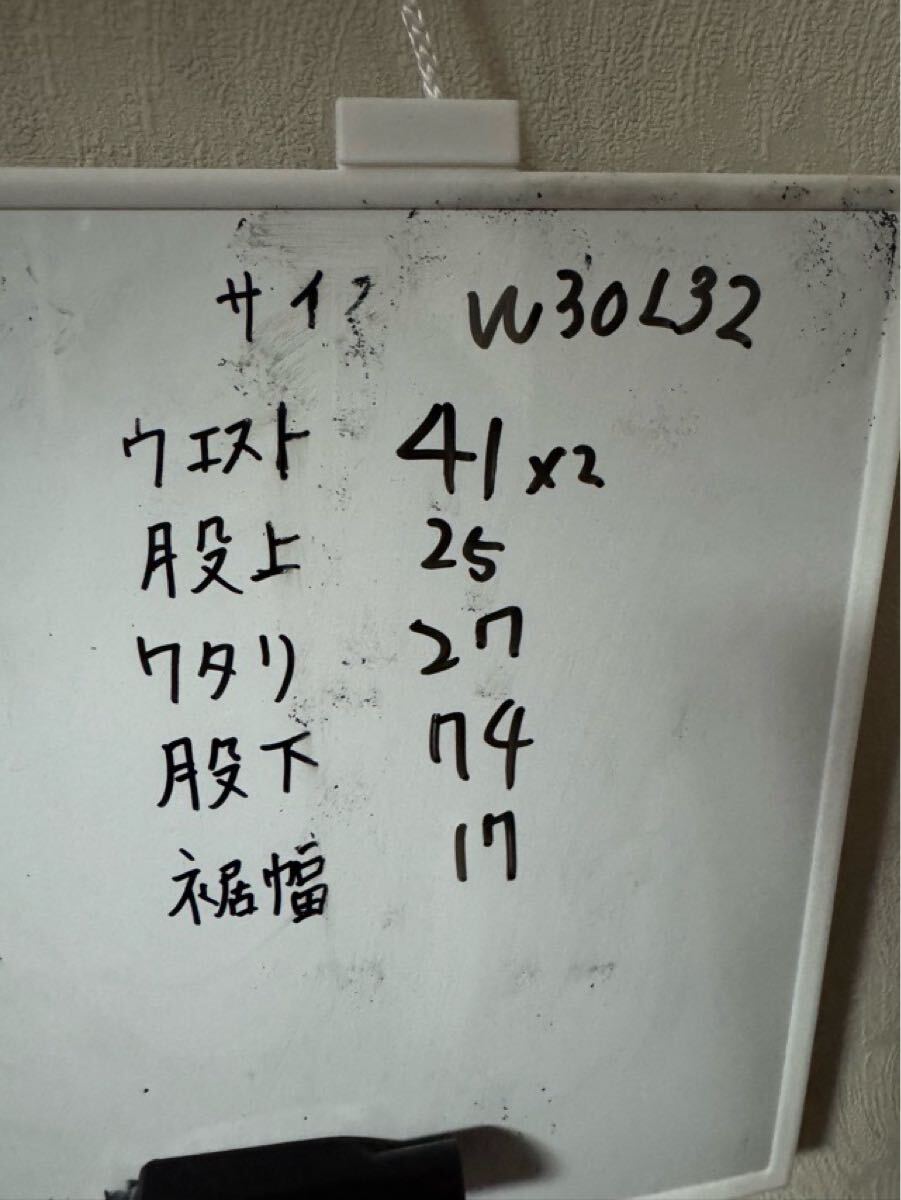 サイズ W30L32
ウエスト 41x2
股上 25
ワタリ 27
股下 74
裾幅 17